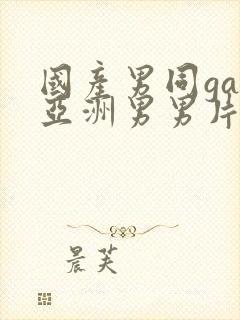 國產男同ga
亞洲男男片
晨芙